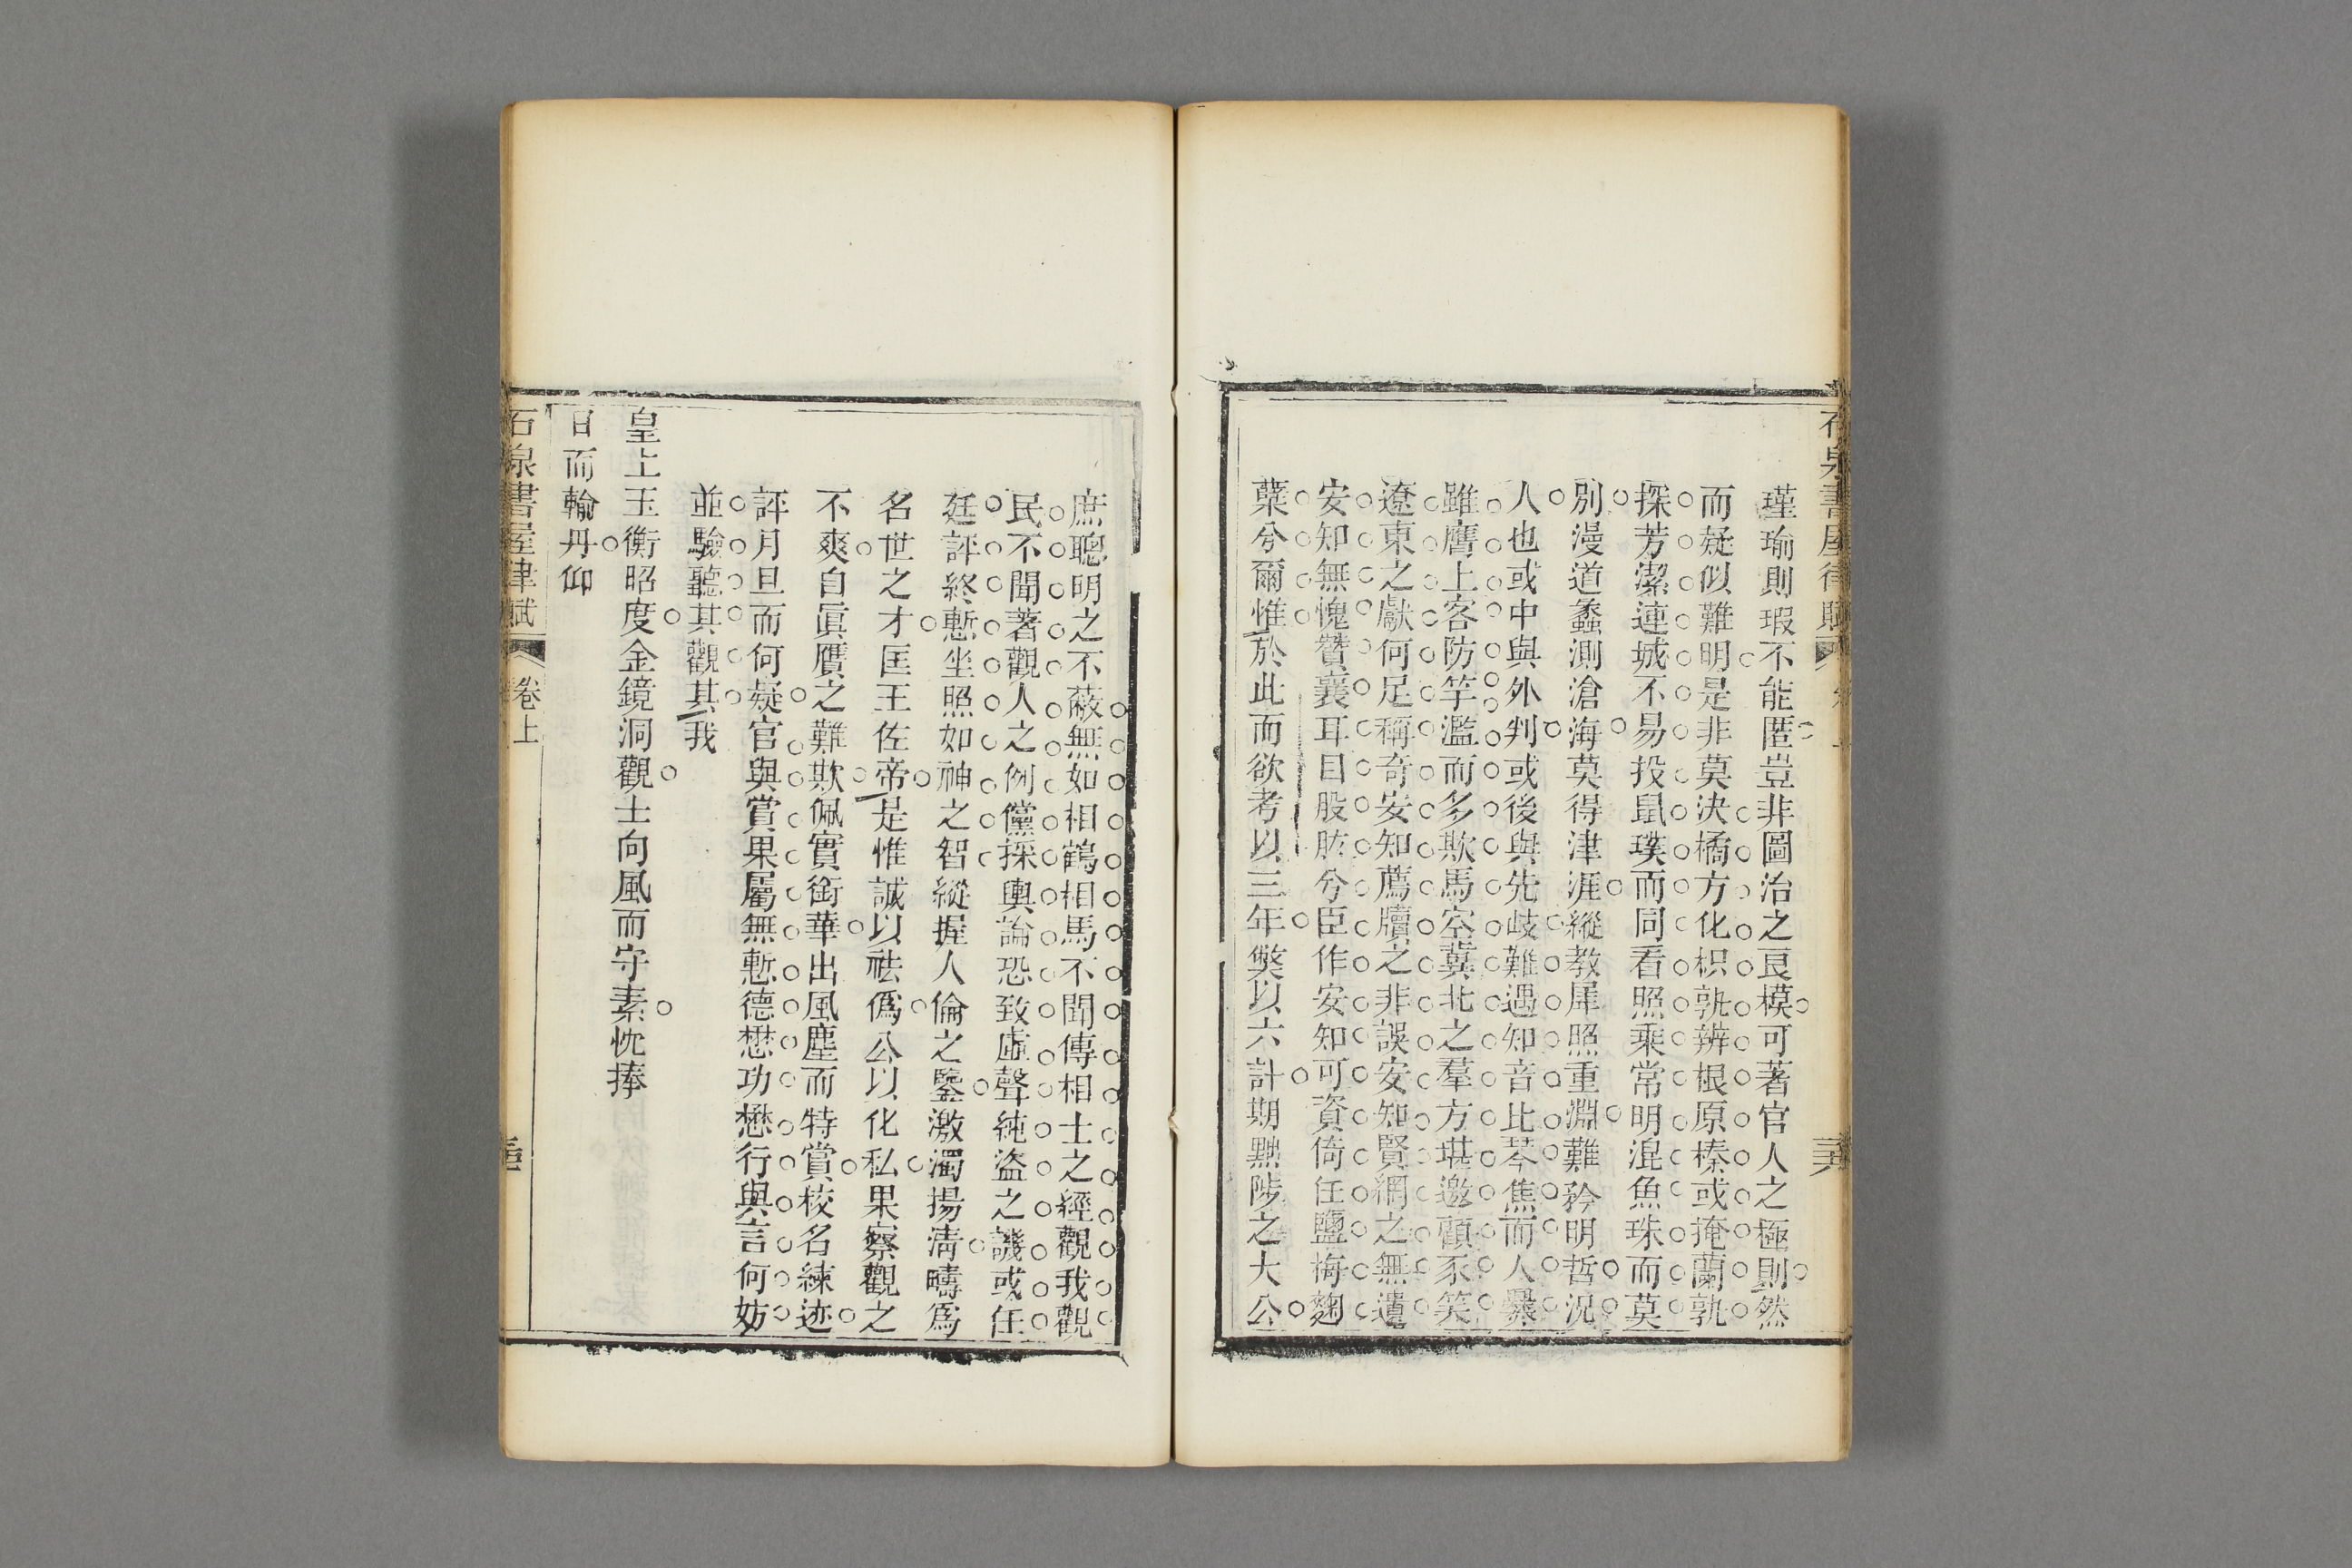 瑾瑜則瑕不能匿豈非圖治之良模可著官人之極則然
而疑似難明是非莫決橘方化枳孰辨根原榛或掩蘭孰
探芳潔連城不易投鼠璞而同看照乘常明混魚珠而莫
別漫道蠡測滄海莫得津涯縱教犀照重淵難矜明哲況
人也或中與外判或後與先歧難遇知音比琴焦而人爨
雖膺上客防竽濫而多欺馬空冀北之羣方堪邀顧豕笑
遼東之獻何足稱奇安知薦牘之非誤安知賢網之無遺
安知無愧贊襄耳目股肱兮臣作安知可資倚任鹽梅麴
櫱兮爾惟於此而欲考以三年獘以六計期黜陟之大公
庶聰明之不蔽無如相鶴相馬不聞傳相士之經觀我觀
民不聞著觀人之例儻採輿論恐致虛聲純盜之譏或任
廷評終慙坐照如神之智縱握人倫之鑒激濁揚清疇為
名世之才匡王佐帝是惟誠以祛僞公以化私果察觀之
不爽自眞贗之難欺佩實銜華出風塵而特賞校名練迹
評月旦而何疑官與賞果屬無慙德懋功懋行與言何妨
並驗聽其觀其我
皇上玉衡昭度金鏡洞觀士向風而守素忱捧
日而輸丹仰
石泉書屋律賦
卷上